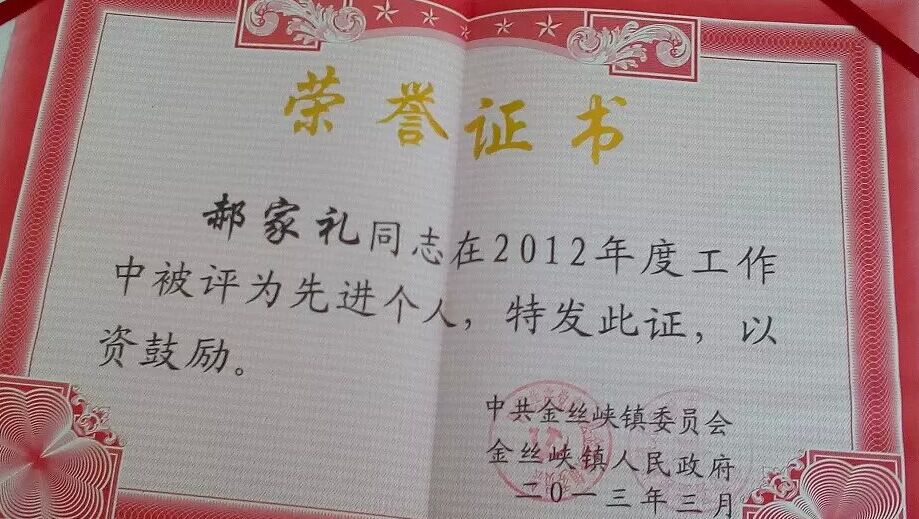 荣誉证书
郝家礼同志在2012年度工作
中被评为先进个人，特发此证，以
资鼓励。
中共金丝峡镇委员会
金丝峡镇人民政府
二〇一三年三月